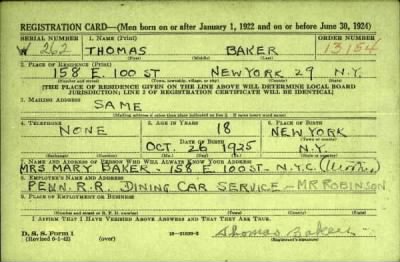 REGISTRATION CARD—(Men born on or after January 1, 1922 and on or before June 30, 1924)
SERIAL NUMBER 1. NAME (Print) ORDER NUMBER
W 262 THOMAS BAKER 13154
(First) (Middle) (Last)
2. PLACE OF RESIDENCE (Print)
158 E. 100 ST NEW YORK 29 N.Y.
(Number and street) (Town, township, village, or city) (County) (State)
[THE PLACE OF RESIDENCE GIVEN ON THE LINE ABOVE WILL DETERMINE LOCAL BOARD
JURISDICTION; LINE 2 OF REGISTRATION CERTIFICATE WILL BE IDENTICAL]
3. MAILING ADDRESS
SAME
(Mailing address if other than place indicated on line 2. If same insert word same)
4. TELEPHONE 5. AGE IN YEARS 6. PLACE OF BIRTH
NONE 18 NEW YORK
DATE OF BIRTH (Town or county)
OCT. 26 1925 N.Y.
(Exchange) (Number) (Mo.) (Day) (Yr.) (State or country)
7. NAME AND ADDRESS OF PERSON WHO WILL ALWAYS KNOW YOUR ADDRESS
MRS MARY BAKER - 158 E 100 ST. - N.Y.C.
8. EMPLOYER'S NAME AND ADDRESS
PENN. R.R. DINING CAR SERVICE - MR ROBINSON
9. PLACE OF EMPLOYMENT OR BUSINESS
(Number and street or R. F. D. number) (Town) (County) (State)
I AFFIRM THAT I HAVE VERIFIED ABOVE ANSWERS AND THAT THEY ARE TRUE.
D. S. S. Form 1
(over) Thomas Baker
(Registrant's signature)